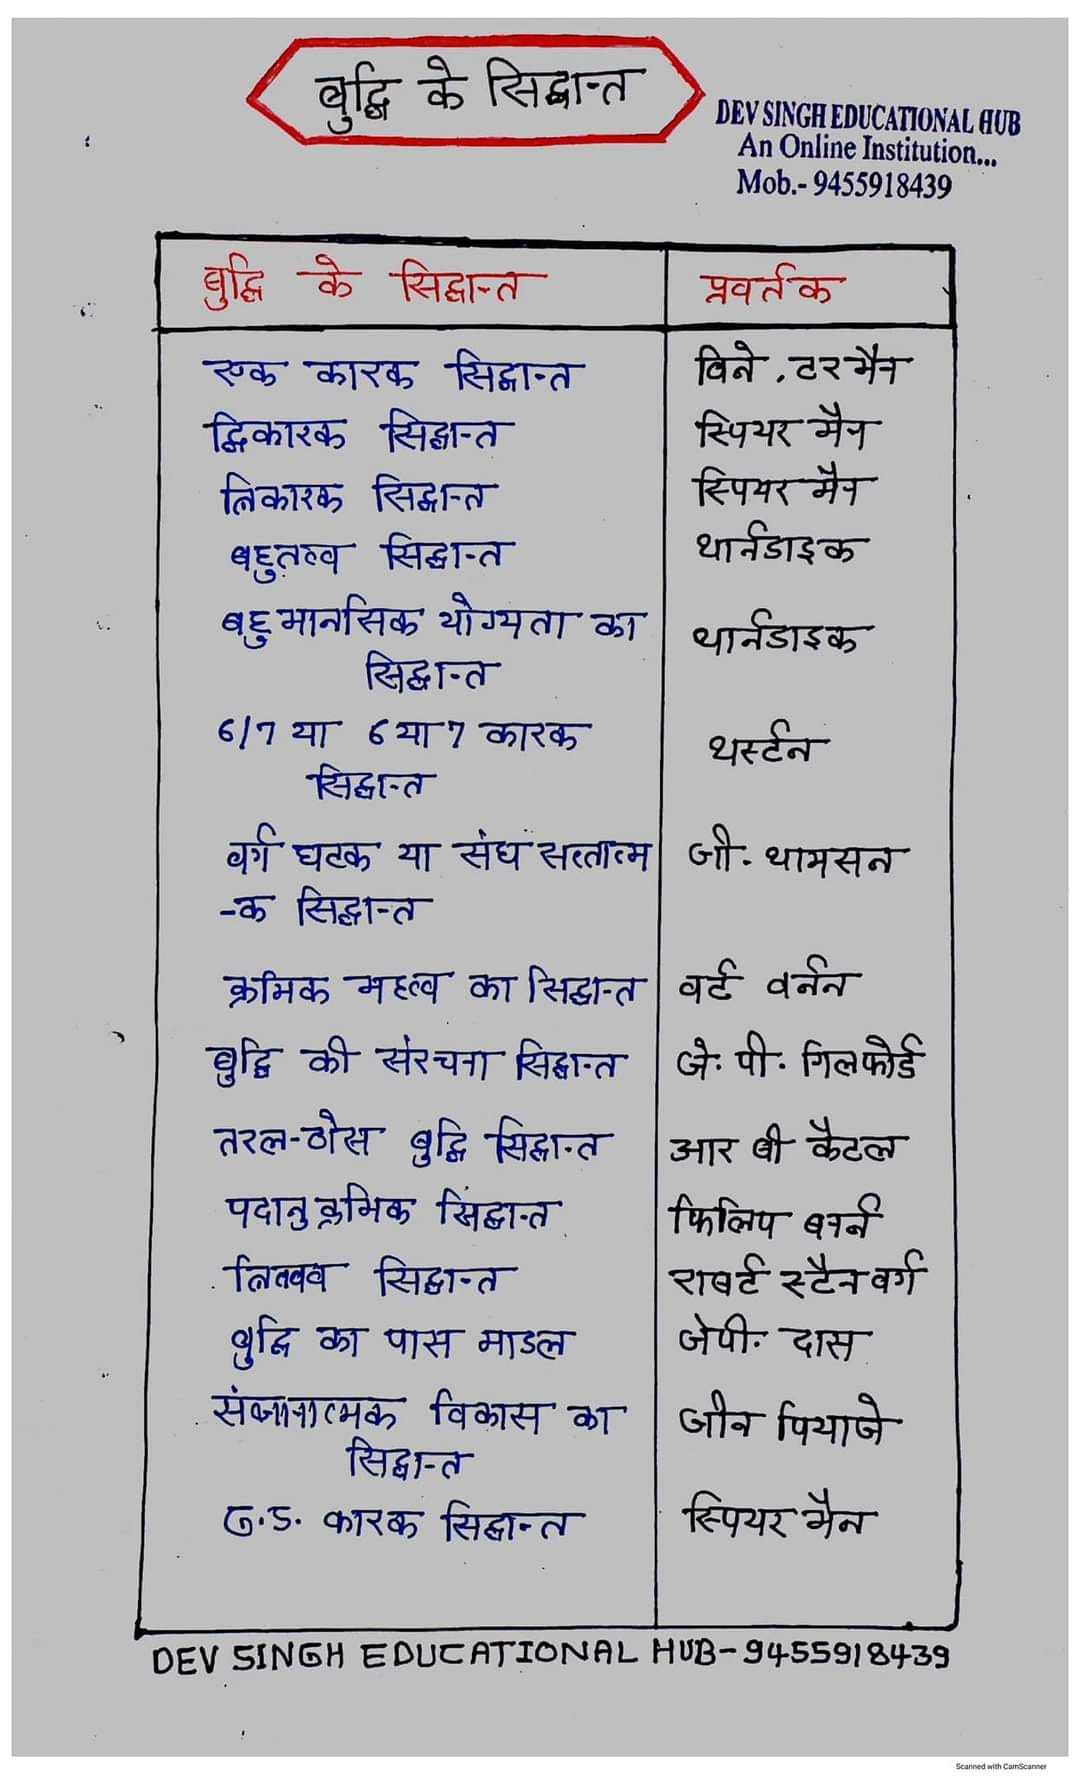 बुद्धि के सिद्धान्त
DEV SINGH EDUCATIONAL HUB
An Online Institution...
Mob.- 9455918439
बुद्धि के सिद्धान्त प्रवर्तक
एक कारक सिद्धान्त विने . टरमैन
द्विकारक सिद्धान्त स्पियर मैन
त्रिकारक सिद्धान्त स्पियर मैन
बहुतत्व सिद्धान्त थार्नडाइक
बहु मानसिक योग्यता का थार्नडाइक
सिद्धान्त
6/7 या 6 या 7 कारक थर्स्टन
सिद्धान्त
वर्ग घटक या संघ सत्तात्म जी. थामसन
-क सिद्धान्त
क्रमिक महत्व का सिद्धान्त वर्ट वर्नन
बुद्धि की संरचना सिद्धान्त जे. पी. गिलफोर्ड
तरल-ठोस बुद्धि सिद्धान्त आर बी कैटल
पदानुक्रमिक सिद्धान्त फिलिप बर्न
त्रितत्व सिद्धान्त राबर्ट स्टैनवर्ग
बुद्धि का पास माडल जेपी. दास
संज्ञानात्मक विकास का जीन पियाजे
सिद्धान्त
G.S. कारक सिद्धान्त स्पियर मैन
DEV SINGH EDUCATIONAL HUB-9455918439
Scanned with CamScanner